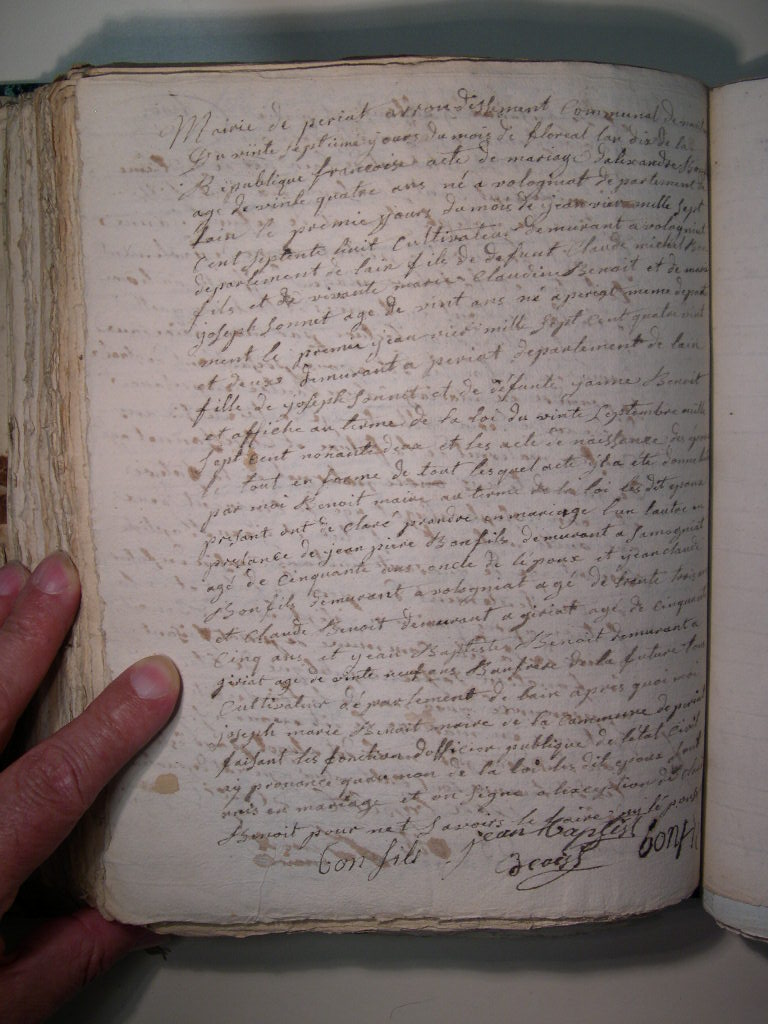 Mairie de periat arrondissement Communal de
Du vinte septieme jours du mois de floreal lan dix de la
Republique francoise acte de mariage dalexandre Bon
age de vinte quatre ans né a vologniat departement de
lain le premie jours du mois de jeanvier mille sept
cent septente huit Cultivateur demurant a vologniat
departement de lain fils de defunt Claude michel Bon
fils et de vivante marie Claudine Benoit et de marie
joseph Sonnet age de vint ans né a periat meme depart
ment le premie jeanvier mille sept cent quatre vint
et deux demurant a periat departement de lain
fille de joseph Sonnet et de défunte jaime Benoit
et affiche au terme de la loi du vinte Septembre mille
sept cent nonante deux et les acte de naissance des epoux
le tout en forme de tout lesquel acte il a été donne
par moi Benoit maire au terme de la loi les dit epoux
présant ont de claré prandre en mariage lun lautre en
préstance de jean piere Bonfils demurant a Samogniat
agé de Cinquante ans oncle de lépoux et jean claude
Bonfils demurant a vologniat agé de trante trois
et Claude Benoit demurant a giriat agé de Cinquante
Cinq ans et jean Baptiste Benoit demurant a
giriat age de vinte neuf ans Baufrere de la future tous
Cultivateur departement de lain apres quoi moi
joseph marie Benoit maire de la Commune de periat
faisant les fonction dofficier publique de létat Civil
ay prononcé quau non de la loi les dit epoux sont
unis en mariage et on Signé a lexception de
Benoit pour net Savoirs le faire
bon fils jean baptist bonf